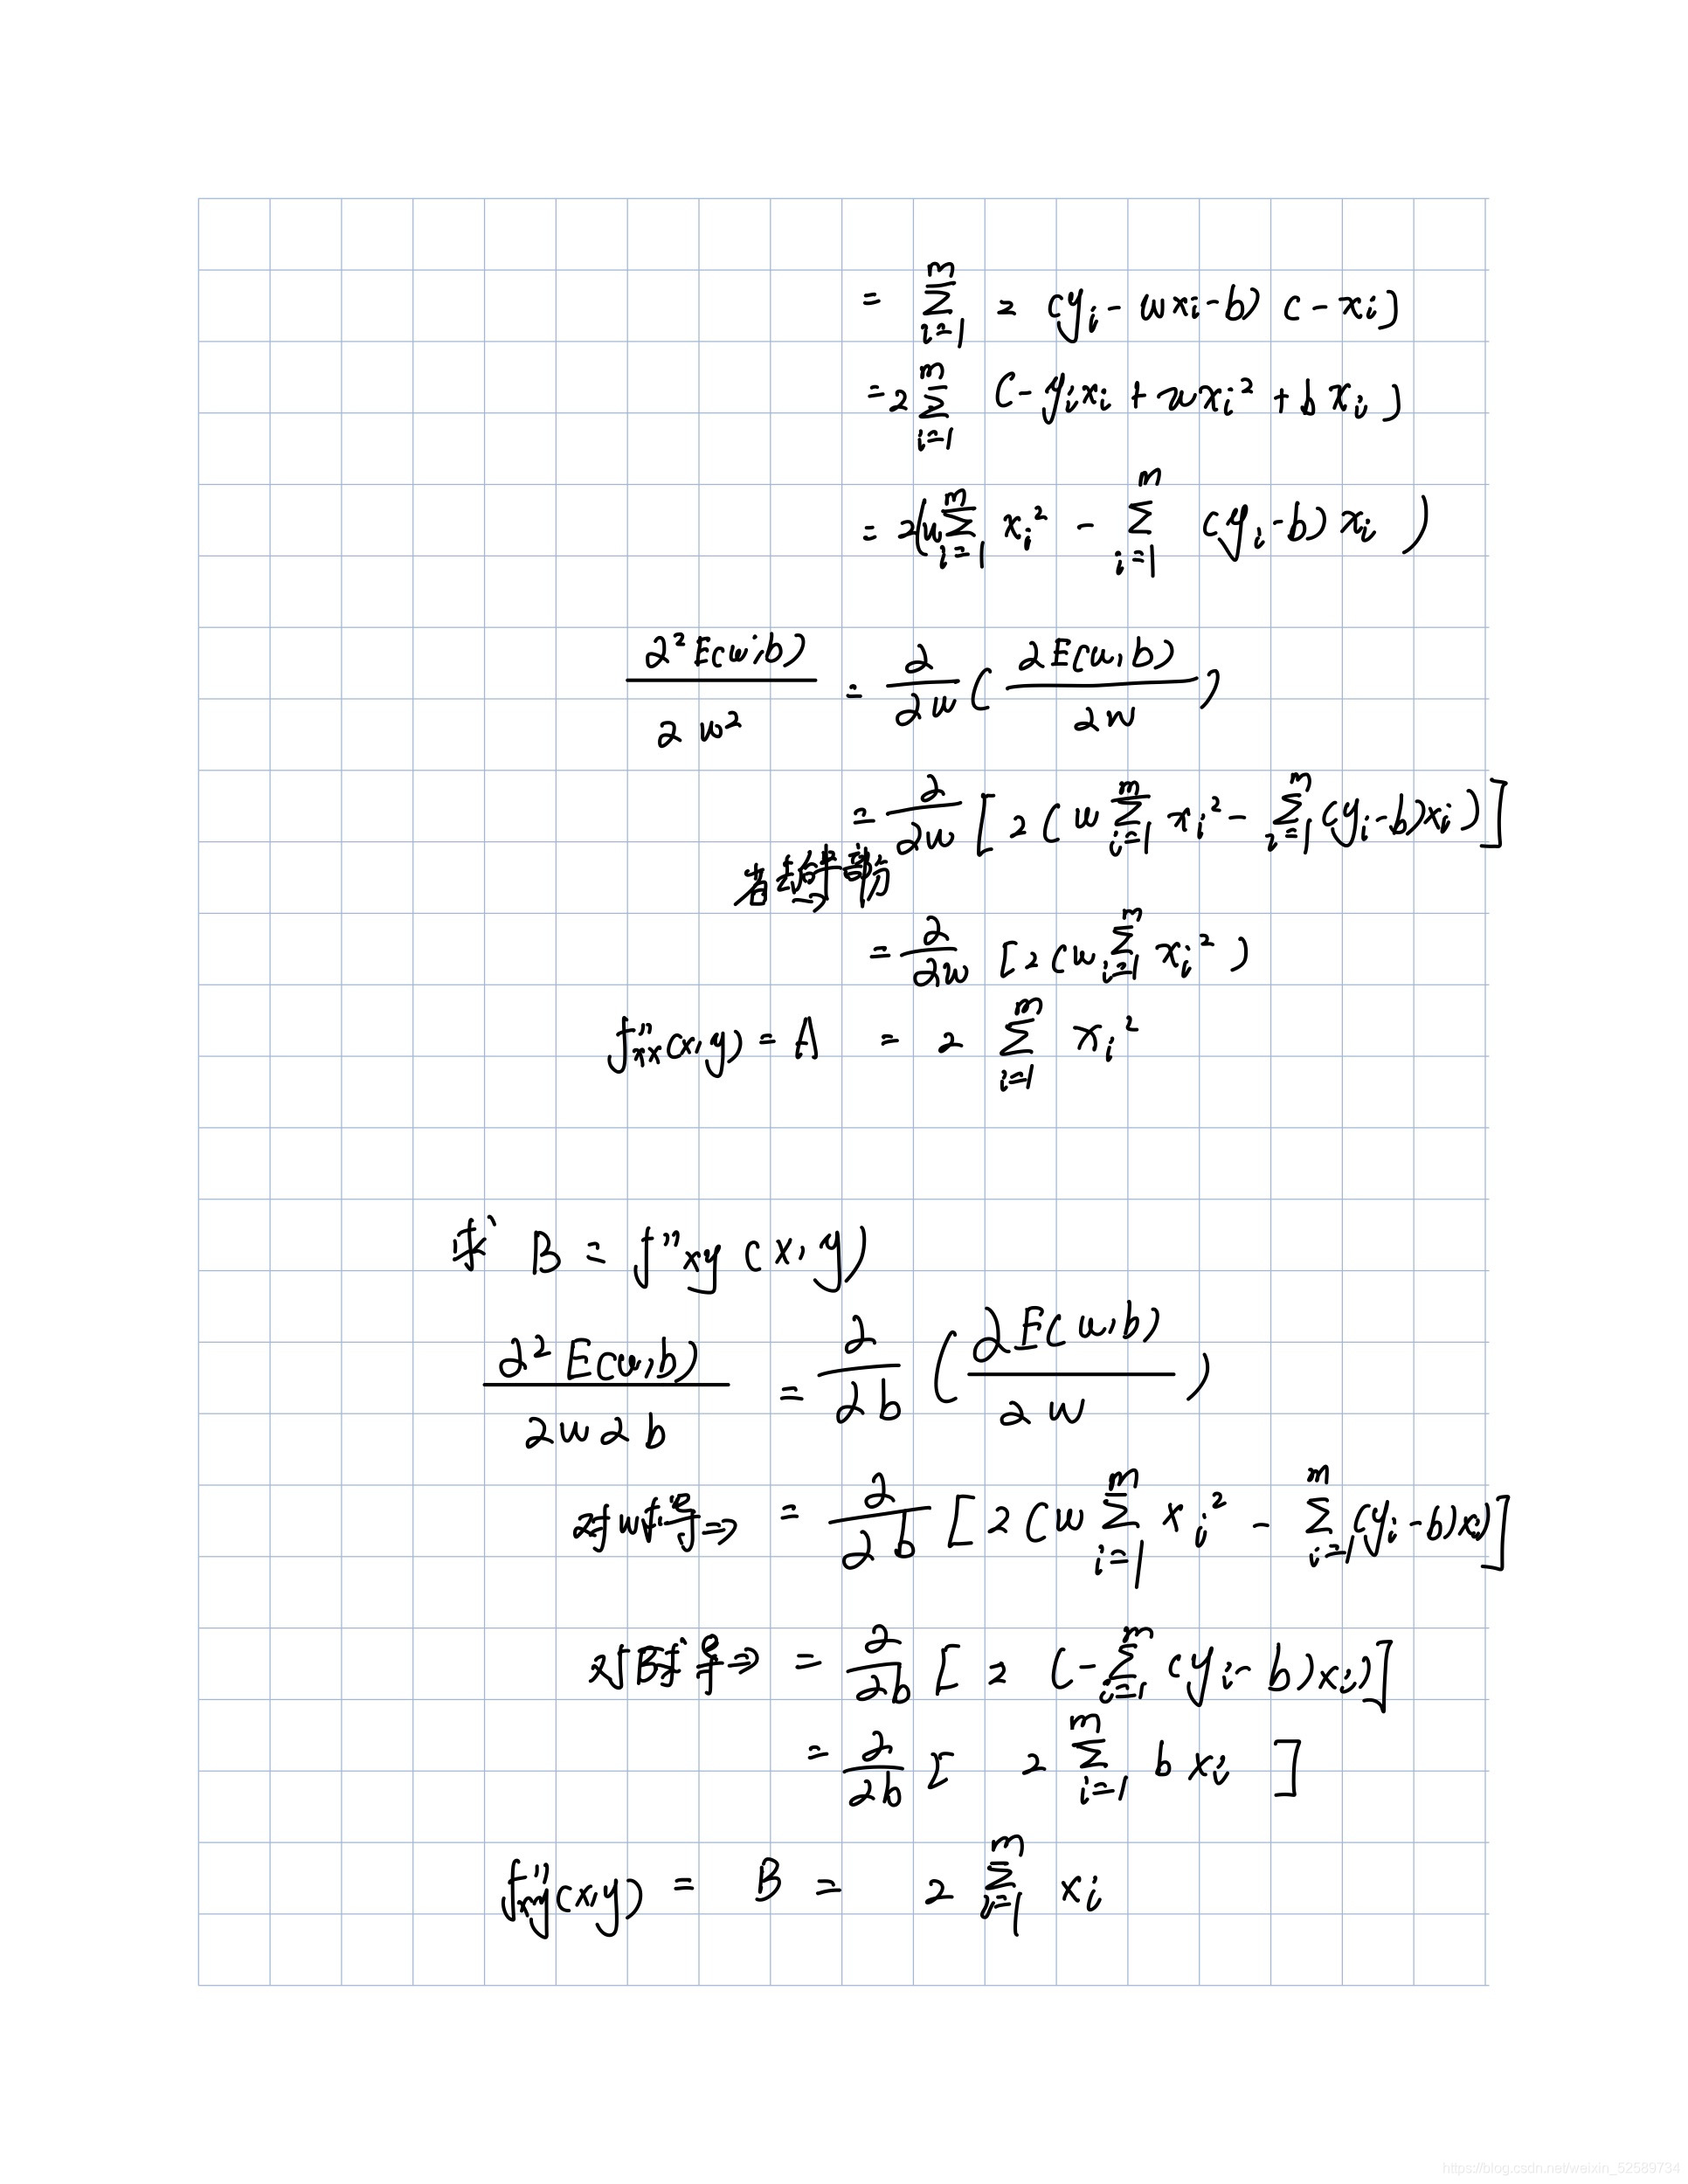 = \sum_{i=1}^{m} 2 (y_i - wx_i - b) (-x_i)
= 2 \sum_{i=1}^{m} (-y_i x_i + wx_i^2 + bx_i)
= 2(w \sum_{i=1}^{m} x_i^2 - \sum_{i=1}^{m} (y_i - b) x_i)
\frac{∂^2 E(w,b)}{∂w^2} = \frac{∂}{∂w} ( \frac{∂E(w,b)}{∂w} )
= \frac{∂}{∂w} [ 2 ( w \sum_{i=1}^{m} x_i^2 - \sum_{i=1}^{m} (y_i - b) x_i ) ]
省去后半部分 ⇒
= \frac{∂}{∂w} [ 2 ( w \sum_{i=1}^{m} x_i^2 )
f''_{xx}(x,y) = A = 2 \sum_{i=1}^{m} x_i^2
求 B = f''_{xy} (x,y)
\frac{∂^2 E(w,b)}{∂w∂b} = \frac{∂}{∂b} ( \frac{∂E(w,b)}{∂w} )
对w求导 ⇒ = \frac{∂}{∂b} [ 2 ( w \sum_{i=1}^{m} x_i^2 - \sum_{i=1}^{m} (y_i - b) x_i ]
对B求导 ⇒ = \frac{∂}{∂b} [ 2 ( - \sum_{i=1}^{m} (y_i - b) x_i ) ]
= \frac{∂}{∂b} [ 2 \sum_{i=1}^{m} b x_i ]
f''_{xy}(x,y) = B = 2 \sum_{i=1}^{m} x_i
https://blog.csdn.net/weixin_52589734